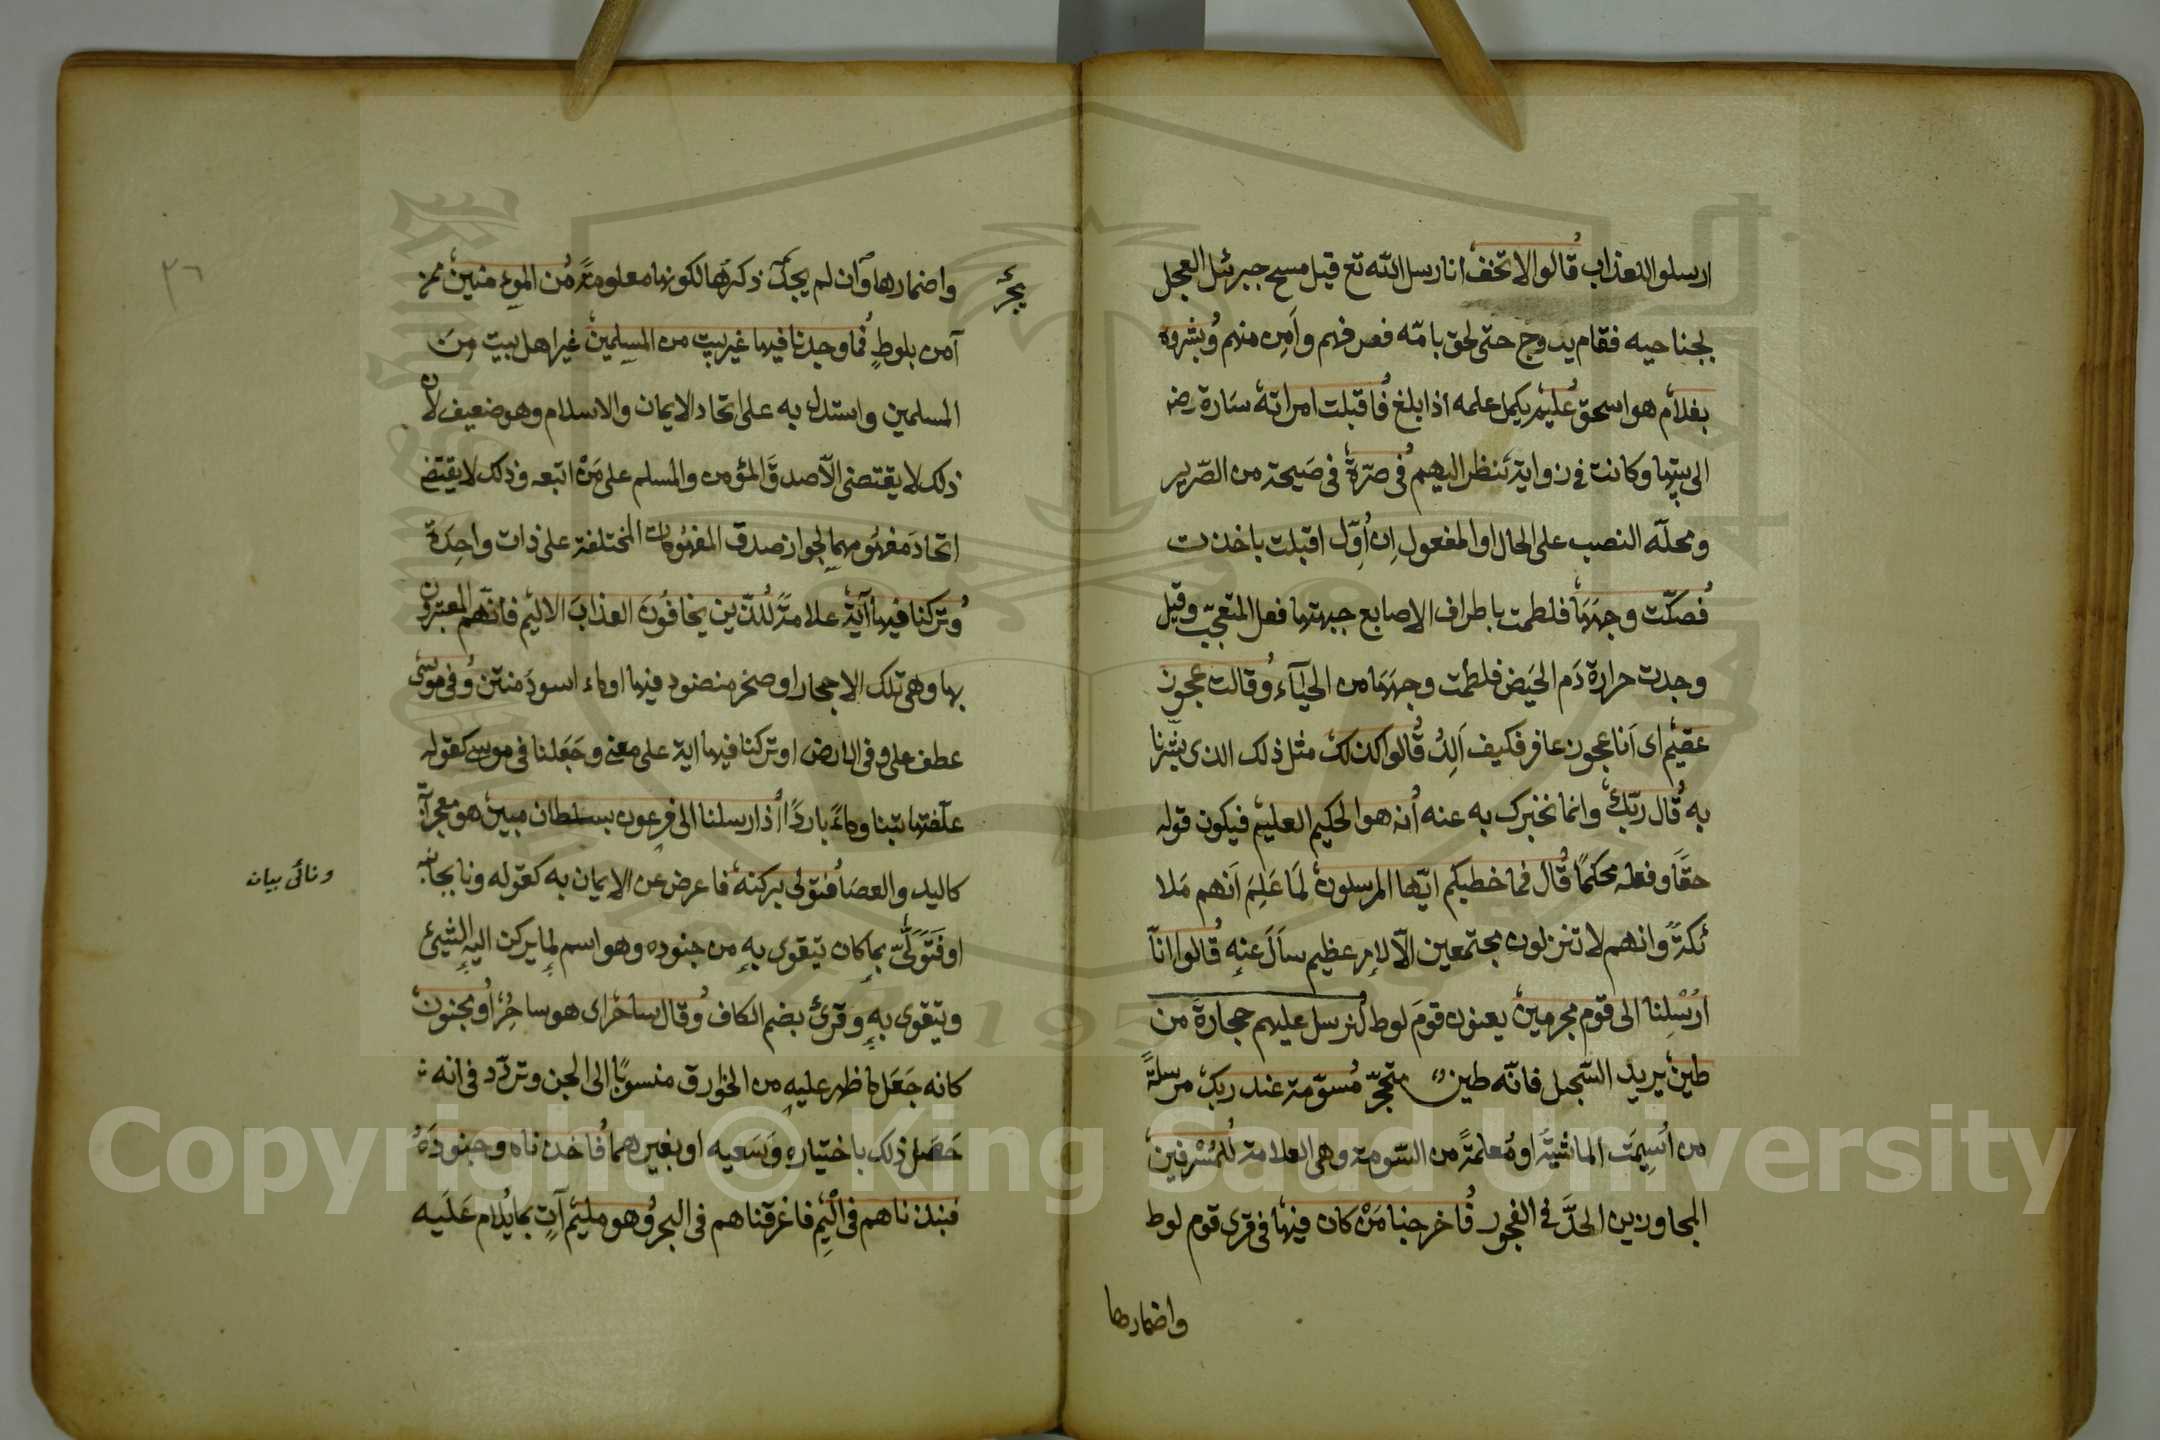 ارسلوا للعذاب قالوا لا تخف انا رسل الله تع قيل مسح جبرئيل العجل
بجناحيه فقام يدرج حتى لحق بامّه فعرفهم وأمِن منهم وبشروه
بغلام هو اسحق عليم يكمل علمه اذا بلغ فاقبلت امراته سارة رضه
الى بيتها وكانت في زواية تنظر اليهم في صرّة في صَيحة من الصّرير
ومحلّه النصب على الحال او المفعول اِن اُوِّل اقبلت باخذت
فصكّت وجهَهَا فلطمت باطراف الاصابع جبهتها فعل المتعجّب وقيل
وجدت حرارة دَم الحَيض فلطمت وجهَهَا من الحيآء وقالت عجوز
عقيم اى اَنا عجوز عاقر فكيف اَلِدُ قالوا كذلك مثل ذلك الذى بشّرنا
به قال ربّك وانما نخبرك به عنه انه هو الحكيم العليم فيكون قوله
حقّا وفعله محكمًا قال فما خطبكم ايّها المرسلون لَمّا عَلِمَ اَنهم مَلا
ئكةً وانهم لا تنزلون مجتمعين الّا لامرٍ عظيم سأَلَ عنه قالوا انآ
ارْسِلنا الى قوم مجرمين يعنون قومَ لوط لنرسل عليهم حجارةً من
طين يريد السّجيل فانّه طين متحجّر مُسوّمة عند ربك مرسلةً
من اُسِيمَت الماشيَةُ او مُعلمةً من السّومة وهى العلامة للمُسْرفين
المجاوزين الحدَّ في الفجور فاخرجنا مَنْ كان فيها فى قرى قوم لوط
واضمارها
واضمارها وان لم يجئ ذكرُها لكونها معلومةً من المؤمنين ممن
يجرِ
آمن بلوطٍ فما وجدنا فيها غير بيت من المسلمين غير اهل بيت مِنَ
المسلمين واستدل به على اتحاد الايمان والاسلام وهو ضعيف لان
ذلك لا يقتضى الّا صدقَ المؤمن والمسلم على مَنْ اتبعه وذلك لا يقتضى
اتحادَ مفهُومهما لجواز صدق المفهُومات المختلفة على ذات واحِدَة
وتركنا فيها آيةً علامةً للذّين يخافُونَ العذابَ الاليم فانّهم المعتبرون
بها وهى تلك الاحجار او صخر منضود فيها او ماء اسودَ منتن وفى موسى
عطف على وفى الارض او تركنا فيها اية على معنى وجَعلنا فى موسى كقوله
علّفتها تبنا وماءً باردًا اذ ارسلنا الى فرعون بسلطان مبين هو معجزآته
كاليد والعصَا فتولى بركنه فاعرض عن الايمان به كقوله ونا بجانبه
ونائى بيان
او فَتَوَلَّى بما كان يتقوى به من جنوده وهو اسم لِما يركن اليه الشيئ
ويتقوى به وقرئ بضم الكاف وقال ساحر اى هو ساحِر او مجنون
كانه جَعَل ما ظهر عليه من الخوارق منسوبًا الى الجن وتردّد فى انه
حَصَل ذلك باختياره وَسَعيه او بغيرهما فاخذناه وجنودَهُ
فنبذناهم فى الْيَمِ فاغرقناهم فى البحر وهو مليم آتٍ بما يُلام عَلَيه
٢٦
Copyright © King Saud University